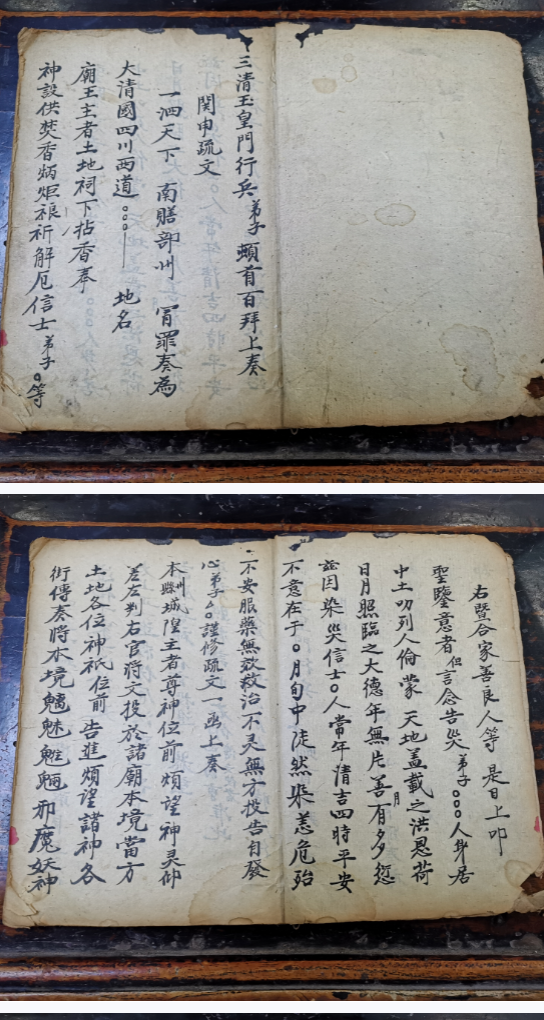 三清玉皇門行兵弟子頓首百拜上奏
関申疏文
一泗天下 南膳部州 冐罪奏為
大清國四川西道○○○ 地名
廟王主者土地祠下拈香奉
神設供焚香炳炬禳祈解厄信士弟子○等
右暨合家善良人等 是日上叩
聖鑒意者但言念告災弟子○○○人身居
中土叨列人倫蒙 天地盖載之洪恩荷
日月照臨之大德年無片善月有多愆
兹因染災信士○人常年清吉四時平安
不意在于○月旬中陡然染恙危殆
不安服藥無效救治不灵無方投告自發
心弟子△○謹修疏文一函上奏
本州縣城隍主者尊神位前 煩望神灵仰
差左判右官將文投於諸廟本境當方
土地各位神祇位前 告進煩望諸神各
衔傳奏將本境魑魅魍魎邪魔妖神